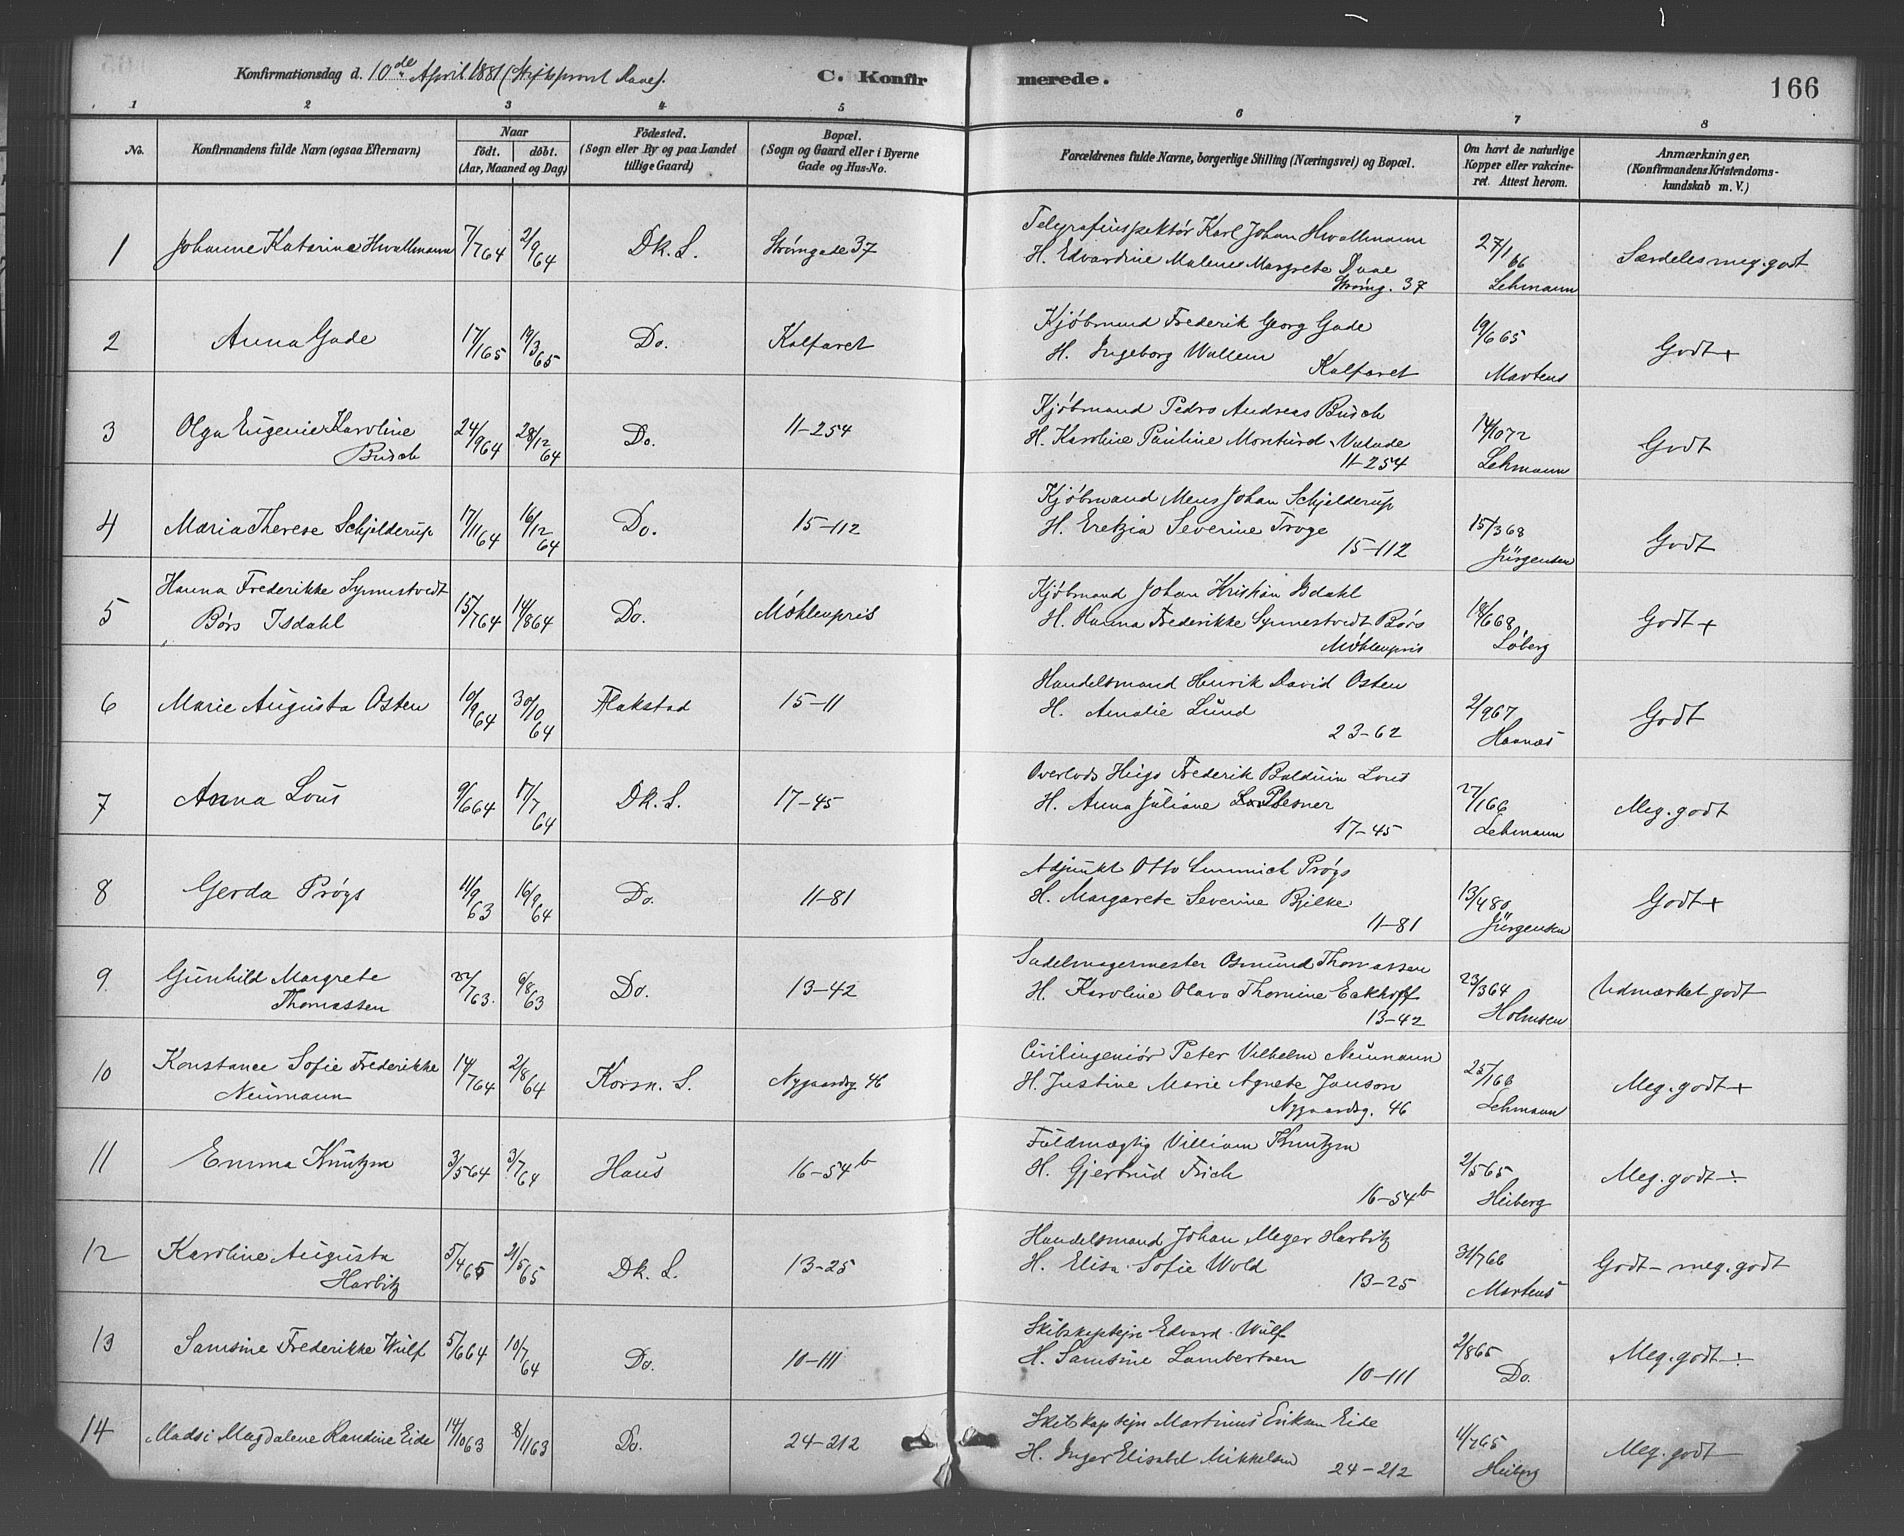 166
Konfirmationsdag d. 10de April 1881 (Stiftsprovst
C. Konfirmerede.
1 2 3 4 5 6 7 8
No. Konfirmandens fulde Navn (ogsaa Efternavn) Naar født. døbt. (Aar, Maaned og Dag) Födested. (Sogn eller By og paa Landet tillige Gaard) Bopæl. (Sogn og Gaard eller i Byerne Gade og Hus-No. Forældrenes fulde Navne, borgerlige Stilling (Næringsvei) og Bopæl. Om havt de naturlige Kopper eller vakcineret. Attest herom. Anmærkninger, (Konfirmandens Kristendomskundskab m. V.)
1 Johanne Katarina Hwallmann 7/7 64 2/9 64 Dk. S. Strømgade 37 Telegrafinspektør Karl Johan Hwallmann 27/1 66 Særdeles meg. godt
H. Edvardine Malene Margrete Daae Lehmann
Strømg. 37
2 Anna Gade 17/1 65 19/3 65 Do. Kalfaret Kjøbmand Frederik Georg Gade 19/6 65 Godt +
H. Ingeborg Wallem Kalfaret Martens
3 Olga Eugenie Karoline Busch 24/9 64 28/12 64 Do. 11-254 Kjøbmand Pedro Andreas Busch 14/10 72 Godt
H. Karoline Pauline 11-254 Lehmann
4 Maria Therese Schjelderup 17/11 64 16/12 64 Do. 15-112 Kjøbmand Mens Johan Schjelderup 15/3 68 Godt
H. Eretzia Severine Troye 15-112 Jürgensen
5 Hanna Frederikke Synnestvedt Børs Isdahl 15/7 64 14/8 64 Do. Møhlenpris Kjøbmand Johan Kristian Isdahl 18/6 68 Godt +
H. Hanna Frederikke Synnestvedt Børs Møhlenpris Løberg
6 Marie Augusta Osten 10/9 64 30/10 64 Flakstad 15-11 Handelsmand Henrik David Osten 2/9 67 Godt
H. Amalie Lund 23-62
7 Anna Lous 9/6 64 17/7 64 Dk. S. 17-45 Overlods Hugo Frederik Balduin Lous 27/1 66 Meg. godt
H. Anna Juliane Plesner 17-45 Lehmann
8 Gerda Prøys 11/9 63 16/9 64 Do. 11-81 Adjunkt Otto Emmich Prøys 13/4 80 Godt +
H. Margarete Severine Bjelke 11-81 Jürgensen
9 Gunhild Margrete Thomassen 22/7 63. 6/8 63 Do. 13-42 Sadelmagermester Osmund Thomassen 23/3 64 Udmærket godt
H. Karoline Olava Thomine Eckhoff 13-42 Holmsen
10 Konstance Sofie Frederikke Neumann 14/7 64 2/8 64 Korsk. S. Nygaardsg. 46 Civilingeniør Peter Vilhelm Neumann 25/1 66 Meg. godt +
H. Justine Marie Agnete Janson Nygaardsg. 46 Lehmann
11 Emma Knutzen 3/5 64 3/7 64 Haus 16-54b Fuldmægtig Villiam Knutzen 2/5 65 Meg. godt ÷
H. Gjertrud Frich 16-54b Heiberg
12 Karoline Augusta Harbitz 5/4 65 21/5 65 Dk. S. 13-25 Handelsmand Johan Meyer Harbitz 31/7 66 Godt - meg. godt
H. Elisa Sofie Wold 13-25 Martens
13 Samsine Frederikke Wulf 5/6 64 10/7 64 Do. 10-111 Skibskaptejn Edvard Wulf 2/8 65 Meg. godt ÷
H. Samsine Lambertsen 10-111 Do.
14 Madsi Magdalene Randine Eide 14/10 63 8/11 63 Do. 24-212 Skibskaptejn Martinus Eriksen Eide 4/7 65 Meg. godt
H. Inger Elisabet Mikkelsen 24-212 Heiberg